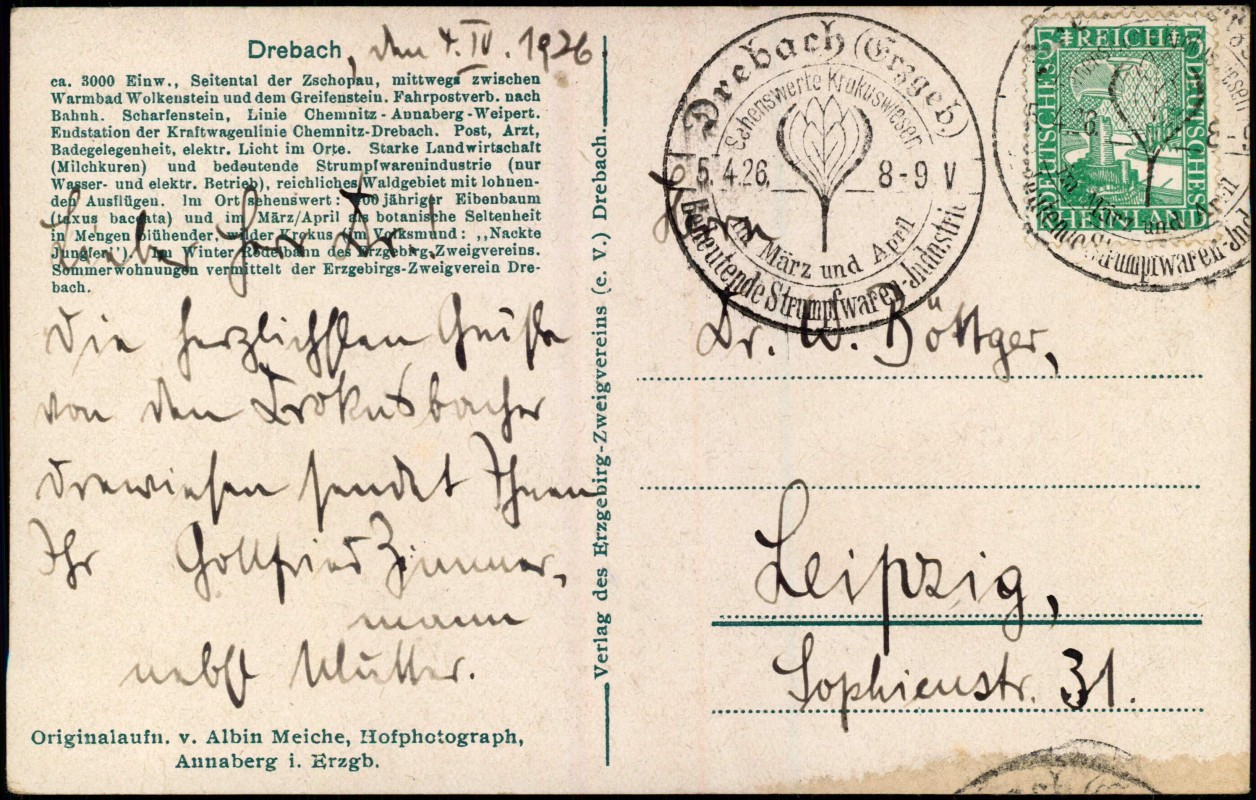 Drebach, den 4. IV. 1926
ca. 3000 Einw., Seitental der Zschopau, mittwegs zwischen
Warmbad Wolkenstein und dem Greifenstein. Fahrpostverb. nach
Bahnh. Scharfenstein, Linie Chemnitz-Annaberg-Weipert.
Endstation der Kraftwagenlinie Chemnitz-Drebach. Post, Arzt,
Badegelegenheit, elektr. Licht im Orte. Starke Landwirtschaft
(Milchkuren) und bedeutende Strumpfwarenindustrie (nur
Wasser- und elektr. Betrieb), reichliches Waldgebiet mit lohnen-
den Ausflügen. Im Ort sehenswert: 400 jähriger Eibenbaum
(taxus bacata) und im März/April als botanische Seltenheit
in Mengen blühender, wilder Krokus (im Volksmund: ,,Nackte
Jungfern"). Im Winter Rodelbahn des Erzgebirg-Zweigvereins.
Sommerwohnungen vermittelt der Erzgebirgs-Zweigverein Dre-
bach.
Lieber Herr Dr.!
Die herzlichsten Grüße
von den Drebacher
Krokuswiesen sendet Ihnen
Ihr Gottfried Zimmer-
mann
nebst Mutter.
Originalaufn. v. Albin Meiche, Hofphotograph,
Annaberg i. Erzgb.
Verlag des Erzgebirg-Zweigvereins (e. V.) Drebach.
Drebach (Erzgeb.)
Sehenswerte Krokuswiesen
5.4.26. 8-9 V
im März und April
Bedeutende Strumpfwaren-Industrie
5 REICH 5
DEUTSCHES DEUTSCHES
RHEINLAND
Herrn
Dr. W. Böttger,
Leipzig,
Sophienstr. 31.